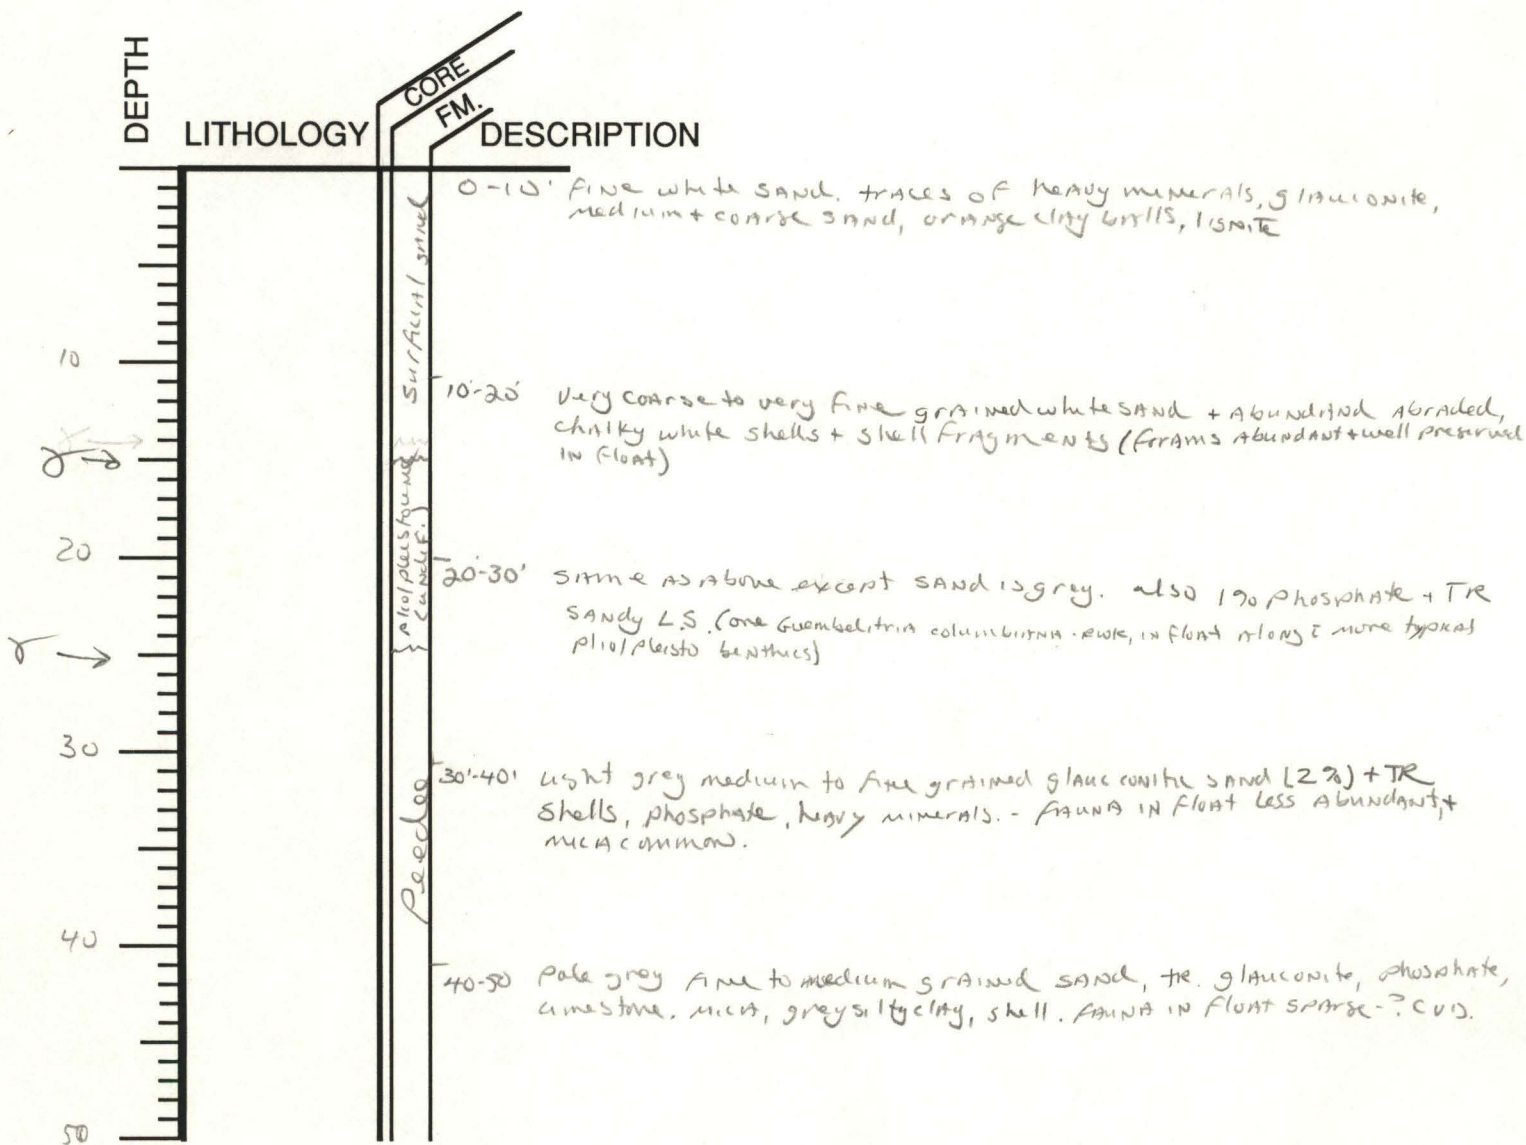 DEPTH
LITHOLOGY
CORE
FM.
DESCRIPTION
surficial sand
0-10' Fine white sand. traces of heavy minerals, glauconite,
medium + coarse sand, orange clay balls, lignite
10
10'-20' Very coarse to very fine grained white sand + abundand abraded,
chalky white shells + shell fragments (forams abundant + well preserved
in float)
γ →
γ →
plio/pleistocene
(undif.)
20
20'-30' Same as above except sand is grey. also 1% phosphate + TR
sandy L.S. (one Guembelitria columbiana - rwk, in float along c̄ more typical
plio/pleisto benthics)
γ →
30
Peedee
30'-40' Light grey medium to fine grained glauconitic sand (2%) + TR
shells, phosphate, heavy minerals. - fauna in float less abundant, +
mica common.
40
40-50 Pale grey fine to medium grained sand, tr. glauconite, phosphate,
limestone, mica, grey silty clay, shell. fauna in float sparse -
50